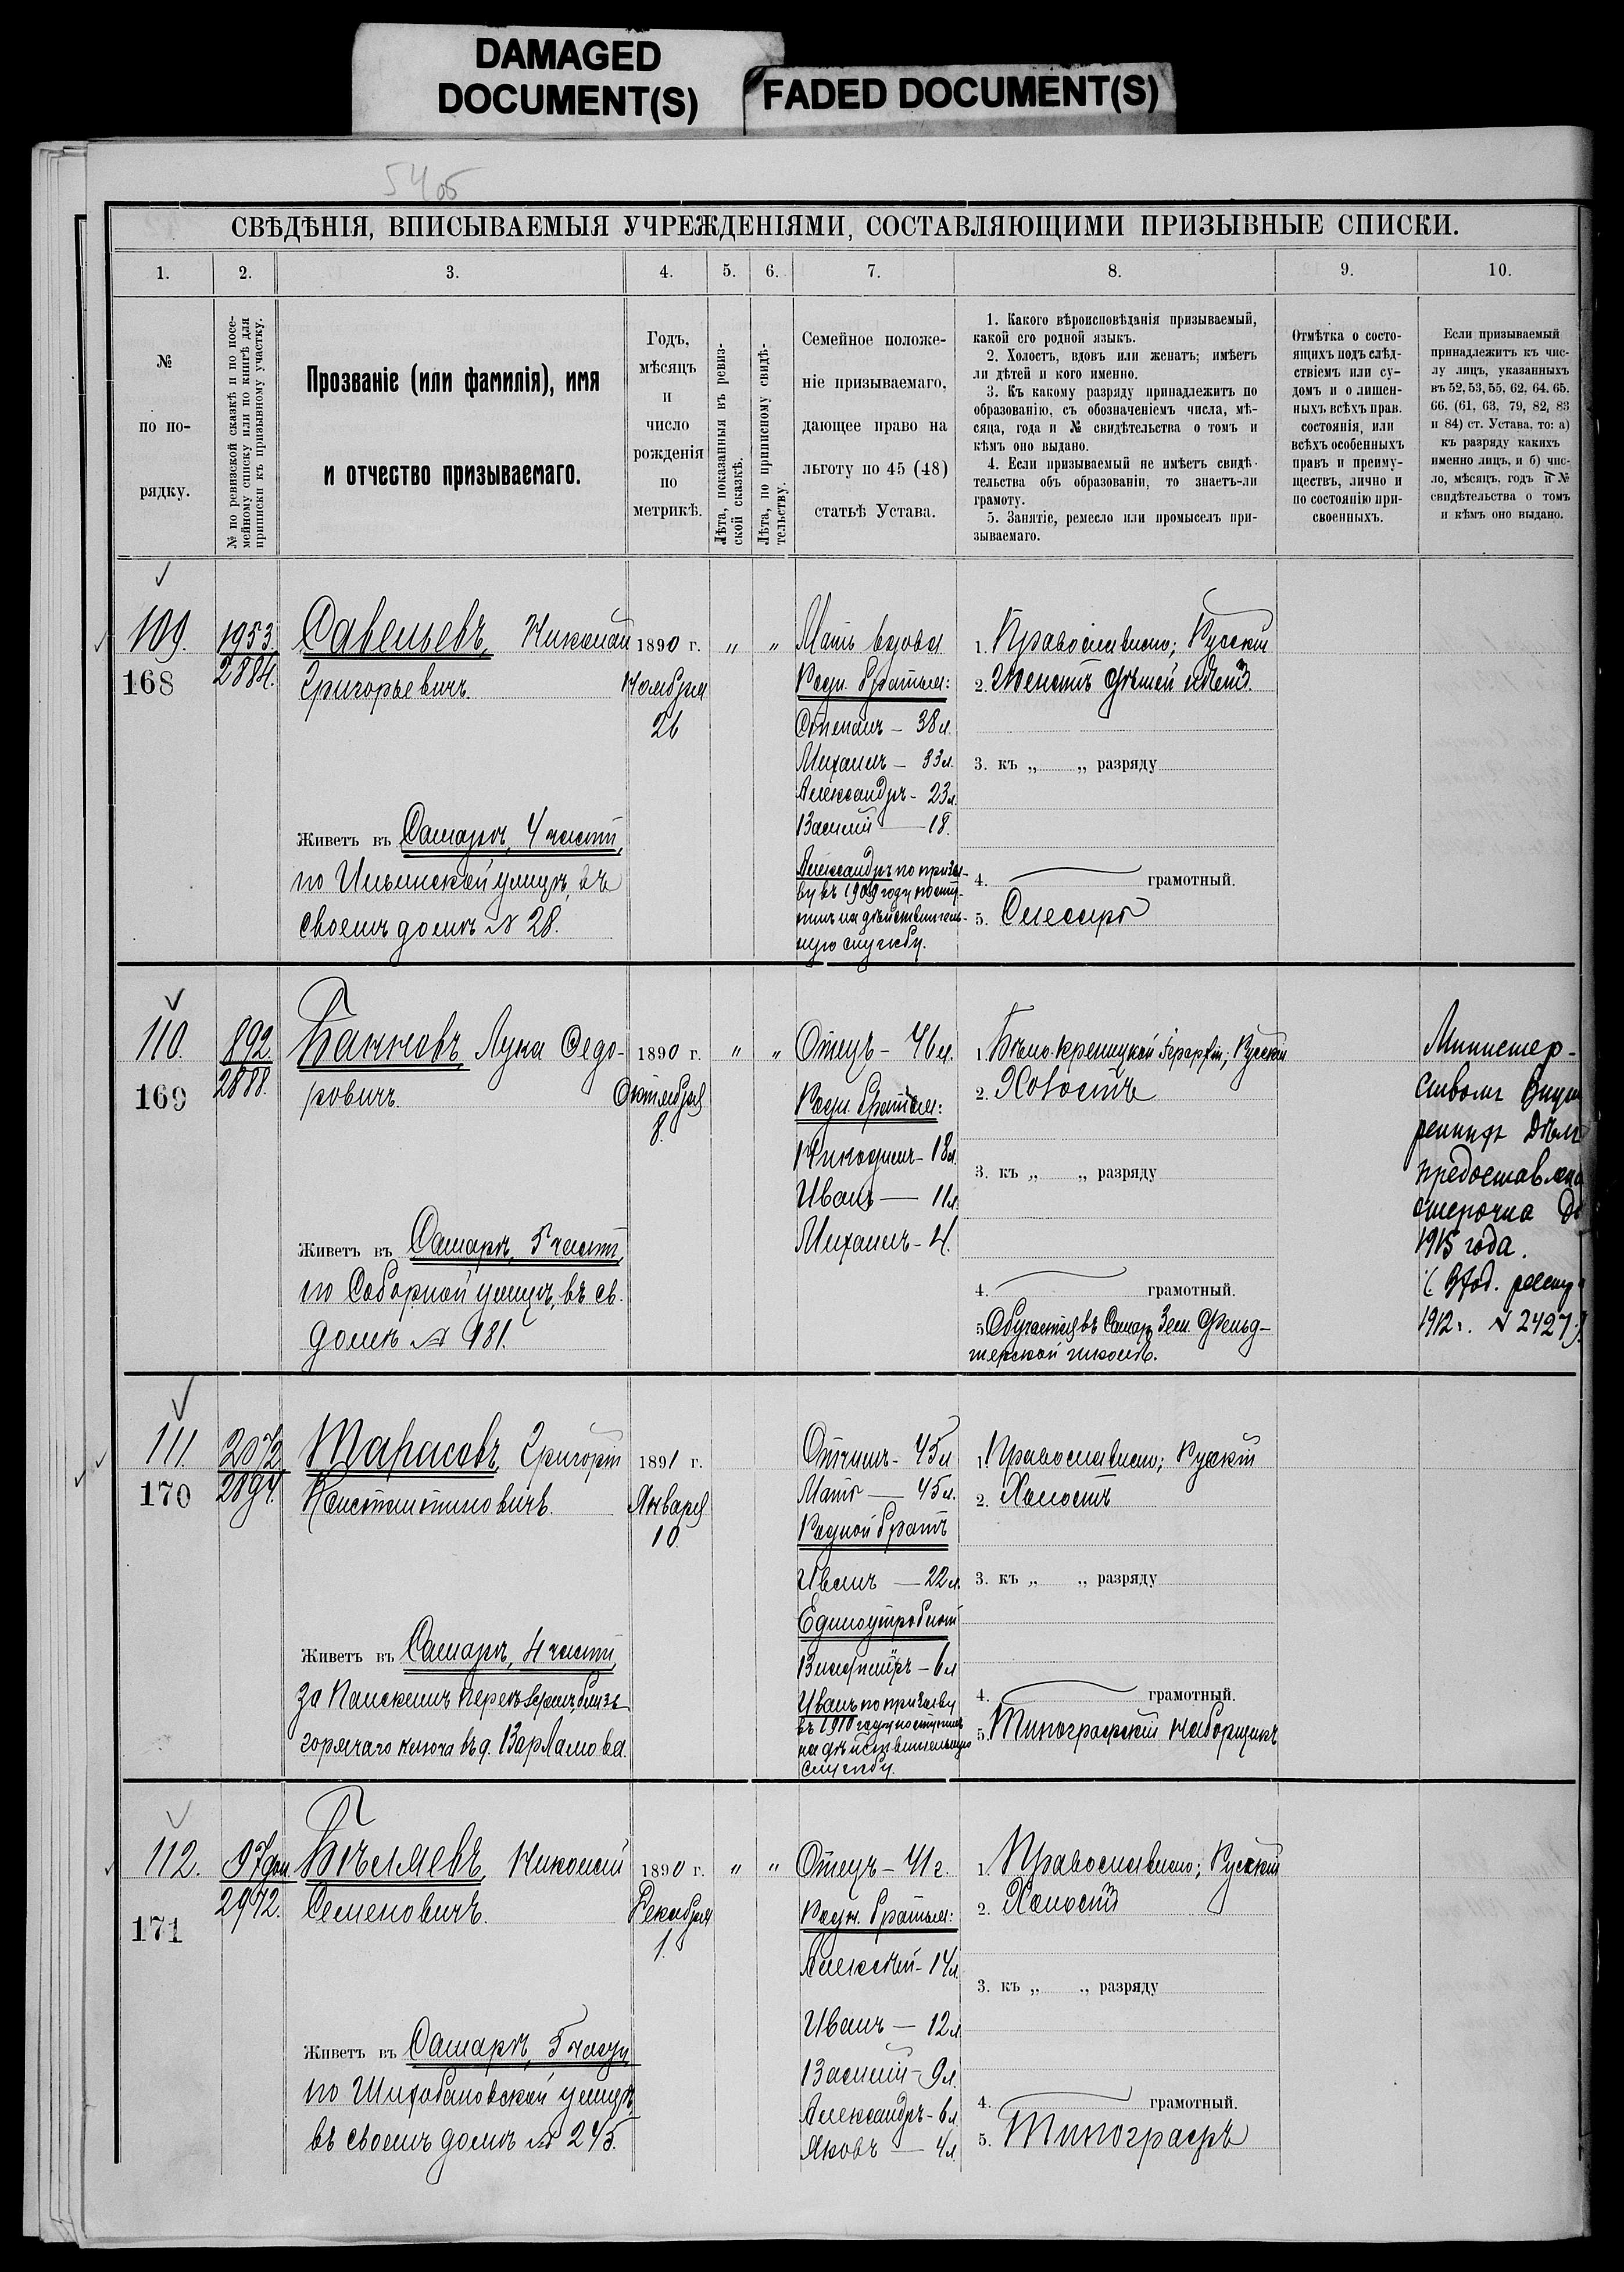 DAMAGED
DOCUMENT(S)
FADED DOCUMENT(S)
5405
СВѢДѢНІЯ, ВПИСЫВАЕМЫЯ УЧРЕЖДЕНІЯМИ, СОСТАВЛЯЮЩИМИ ПРИЗЫВНЫЕ СПИСКИ.
1. 2. 3. 4. 5. 6. 7. 8. 9. 10.
№
по по-
рядку.
№ по ревизской сказкѣ и по посе-
мейному списку или по книгѣ для
приписки къ призывному участку.
Прозваніе (или фамилія), имя
и отчество призываемаго.
Годъ,
мѣсяцъ
и
число
рожденія
по
метрикѣ.
Лѣта, показанныя въ ревиз-
ской сказкѣ.
Лѣта, по приписному свидѣ-
тельству.
Семейное положе-
ніе призываемаго,
дающее право на
льготу по 45 (48)
статьѣ Устава.
1. Какого вѣроисповѣданія призываемый,
какой его родной языкъ.
2. Холостъ, вдовъ или женатъ; имѣетъ
ли дѣтей и кого именно.
3. Къ какому разряду принадлежитъ по
образованію, съ обозначеніемъ числа, мѣ-
сяца, года и № свидѣтельства о томъ и
кѣмъ оно выдано.
4. Если призываемый не имѣетъ свидѣ-
тельства объ образованіи, то знаетъ-ли
грамоту.
5. Занятіе, ремесло или промыселъ при-
зываемаго.
Отмѣтка о состо-
ящихъ подъ слѣд-
ствіемъ или су-
домъ и о лишен-
ныхъ всѣхъ прав.
состоянія, или
всѣхъ особенныхъ
правъ и преиму-
ществъ, лично и
по состоянію при-
своенныхъ.
Если призываемый
принадлежитъ къ чис-
лу лицъ, указанныхъ
въ 52, 53, 55, 62, 64, 65,
66, (61, 63, 79, 82, 83
и 84) ст. Устава, то: а)
къ разряду какихъ
именно лицъ, и б) чис-
ло, мѣсяцъ, годъ и №
свидѣтельства о томъ
и кѣмъ оно выдано.
109.
168
1953.
2884.
Савельевъ, Николай
Григорьевичъ.
Живетъ въ Самарѣ, 4 части,
по Ильинской улицѣ, въ
своемъ домѣ № 28.
1890 г.
Ноября
26
„ „
Мать вдова
Родн. братья:
Степанъ — 38 л.
Михаилъ — 33 л.
Александръ - 23 л.
Василій — 18.
Александръ по призы-
ву въ 1909 году посту-
пилъ на дѣйствитель-
ную службу.
1. Православно; Русскій
2. Женатъ дѣтей нѣтъ.
3. къ „ „ разряду
4. грамотный.
5. Слесарь
110.
169
892.
2888.
Банновъ, Лука Федо-
ровичъ.
Живетъ въ Самарѣ, 5 части,
по Соборной улицѣ, въ св.
домѣ № 181.
1890 г.
Октября
8.
„ „
Отецъ - 46 л.
Родн. братья:
Никодимъ - 18 л.
Иванъ — 11 л.
Михаилъ - 4.
1. Бѣло-креницкой іерархіи; Русскій
2. Холостъ
3. къ „ „ разряду
4. грамотный.
5. Обучается въ Самар. Зем. Фельд-
шерской школѣ.
Министер-
ствомъ Внут
реннихъ Дѣлъ
предоставлена
отсрочка до
1915 года.
1912 г. № 2427)
111.
170
2072
2894.
Тарасовъ, Григорій
Константиновичъ.
Живетъ въ Самарѣ, 4 части,
горячаго ключа въ д. Варламова.
1891 г.
Января
10.
Отчимъ - 45 л.
Мать — 45 л.
Родной братъ
Иванъ — 22 л.
Единоутробный
Владиміръ — 6 л.
Иванъ по призыву
въ 1910 году поступилъ
на дѣйствительную
службу.
1. Православно; Русскій
2. Холостъ
3. къ „ „ разряду
4. грамотный.
5. Типографскій наборщикъ
112.
171
97 доп
2972.
Бѣляевъ, Николай
Семеновичъ.
Живетъ въ Самарѣ, 5 части,
по Шихобаловской улицѣ,
въ своемъ домѣ № 245.
1890 г.
Декабря
1.
„ „
Отецъ - 41 г.
Родн. братья:
Алексѣй - 14 л.
Иванъ — 12 л.
Василій - 9 л.
Александръ - 6 л.
Яковъ — 4 л.
1. Православно; Русскій
2. Холостъ
3. къ „ „ разряду
4. грамотный.
5. Типографъ